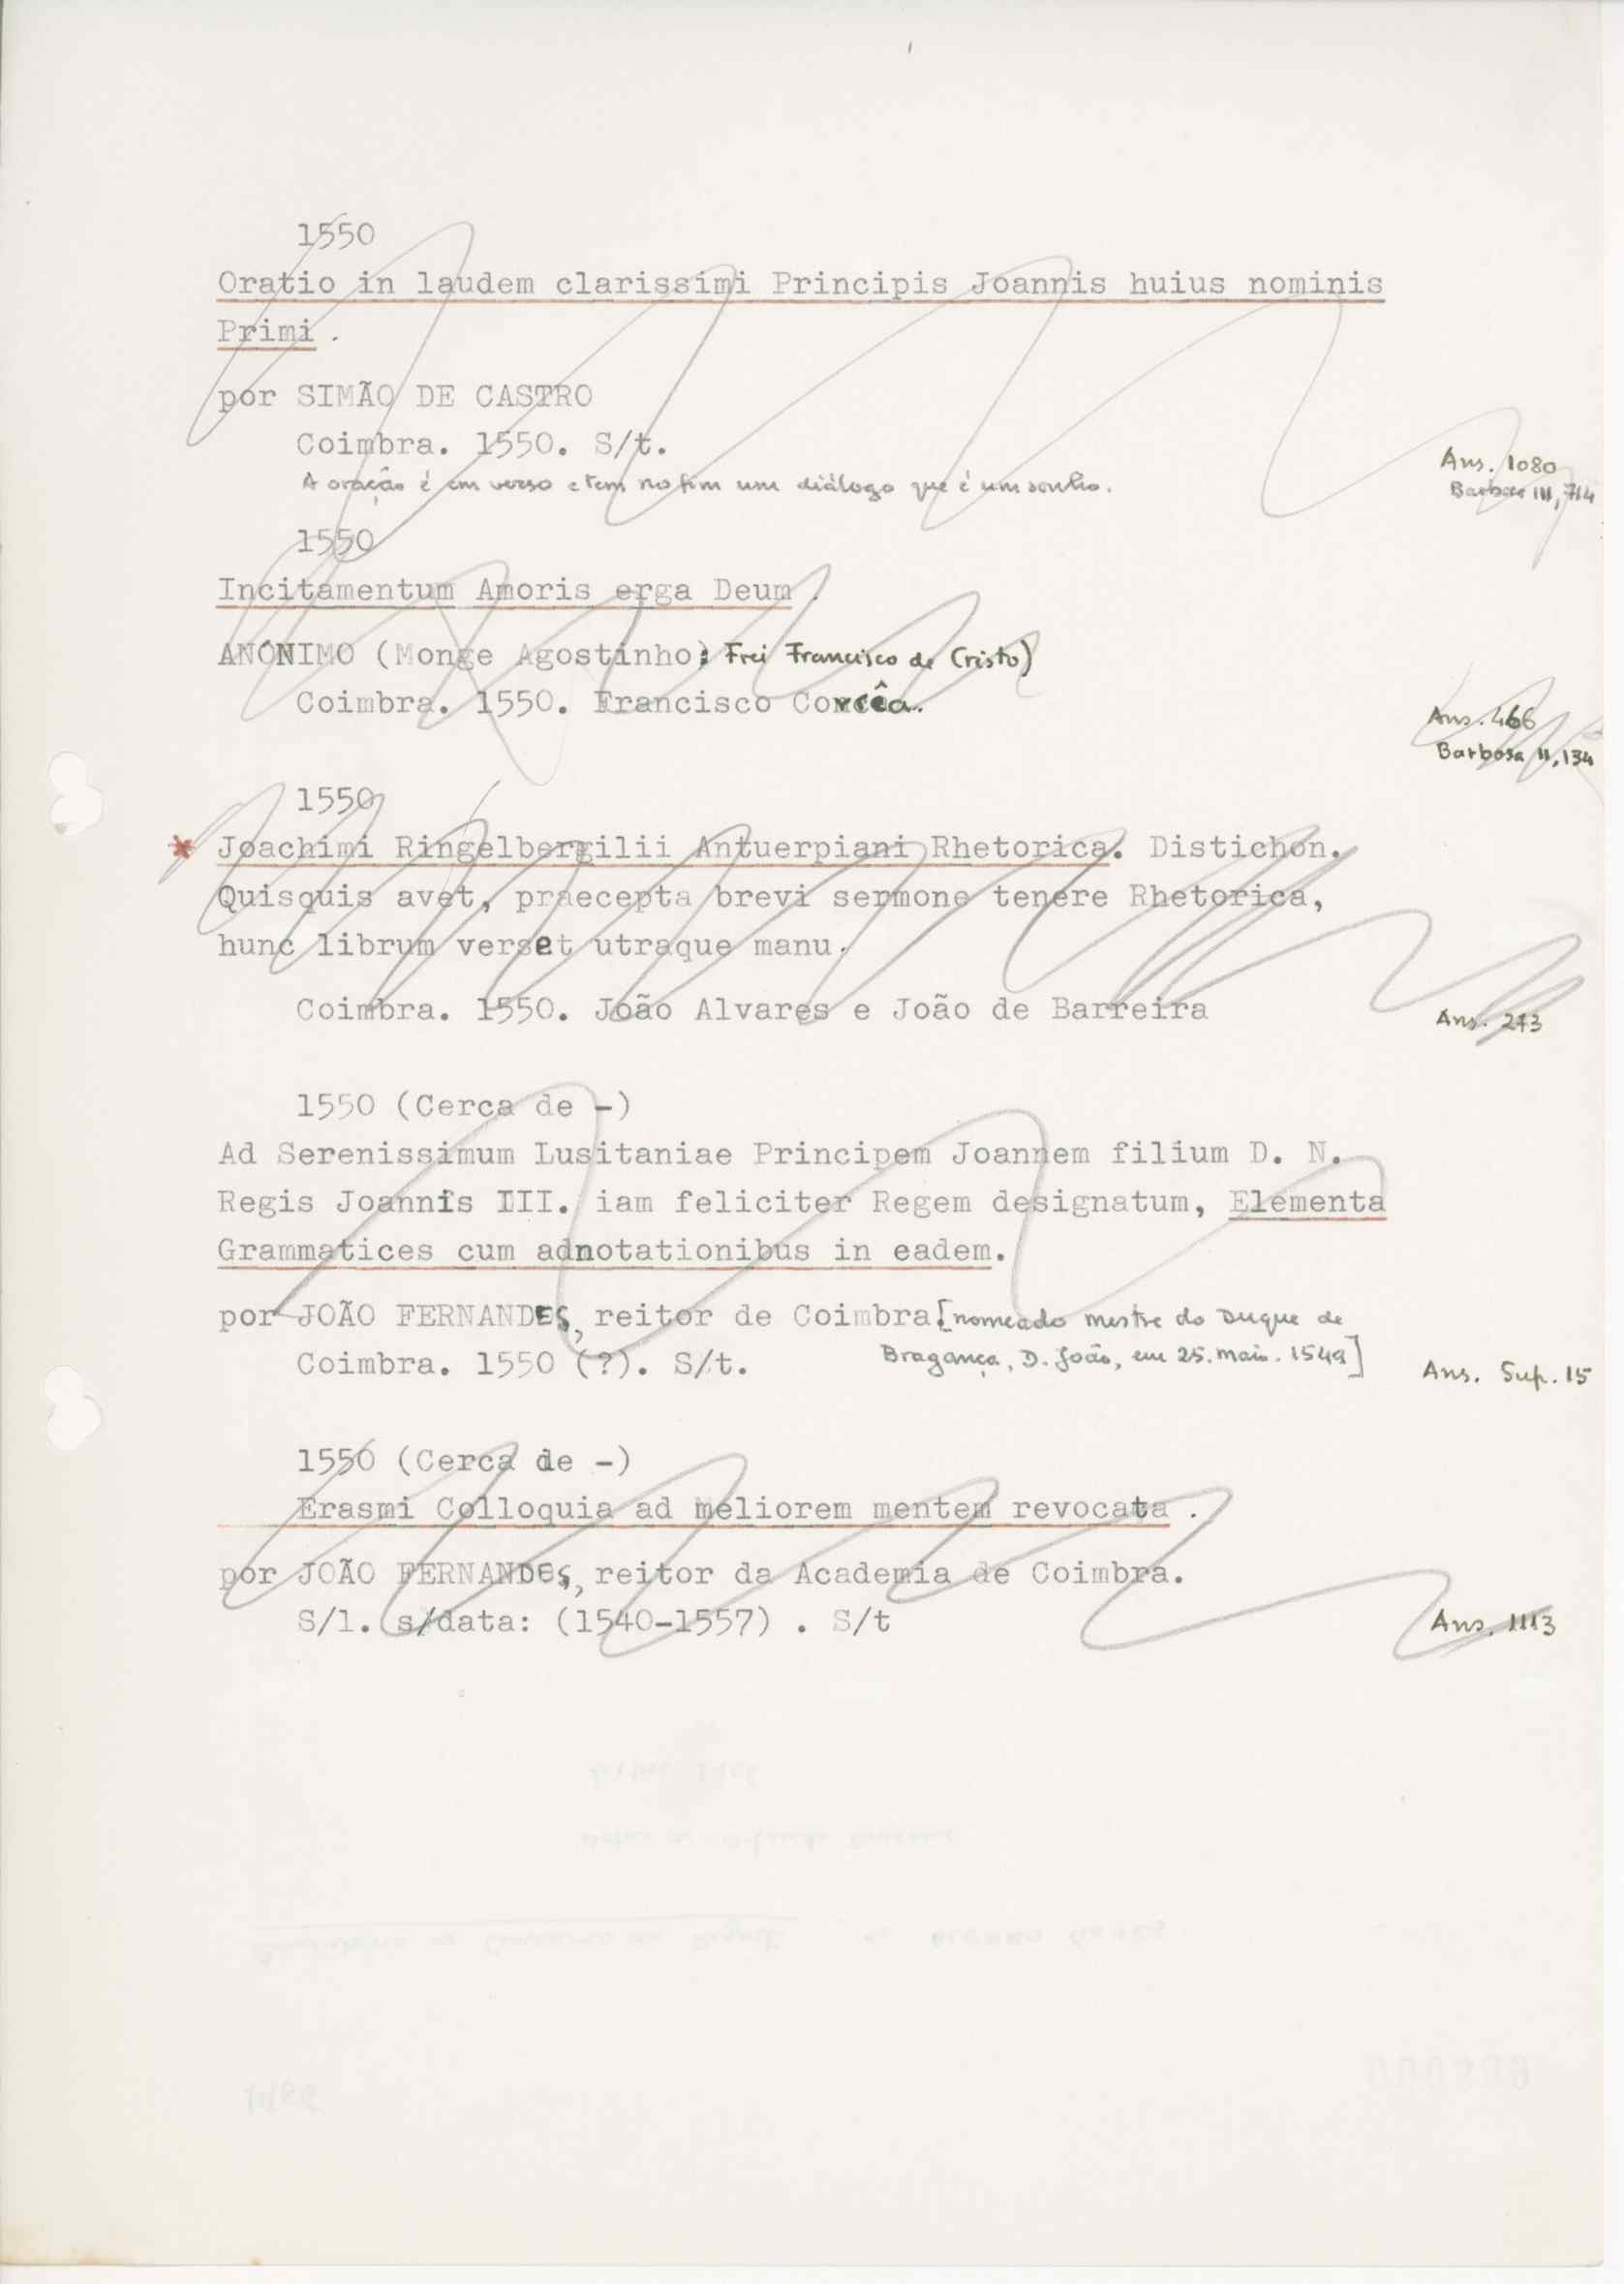 1550
Oratio in laudem clarissimi Principis Joannis huius nominis
Primi .
por SIMÃO DE CASTRO
Coimbra. 1550. S/t.
A oração é em verso e tem no fim um diálogo que é um sonho.
Ans. 1080
Barbosa III, 714
1550
Incitamentum Amoris erga Deum .
ANÓNIMO (Monge Agostinho: Frei Francisco de Cristo)
Coimbra. 1550. Francisco Corrêa.
Ans. 466
Barbosa II, 134
1550
* Joachimi Ringelbergilii Antuerpiani Rhetorica. Distichon.
Quisquis avet, praecepta brevi sermone tenere Rhetorica,
hunc librum verset utraque manu.
Coimbra. 1550. João Alvares e João de Barreira
Ans. 273
1550 (Cerca de -)
Ad Serenissimum Lusitaniae Principem Joannem filium D. N.
Regis Joannis III. iam feliciter Regem designatum, Elementa
Grammatices cum adnotationibus in eadem.
por JOÃO FERNANDES, reitor de Coimbra [nomeado mestre do Duque de
Bragança, D. João, em 25. maio. 1549]
Coimbra. 1550 (?). S/t.
Ans. Sup. 15
1550 (Cerca de -)
Erasmi Colloquia ad meliorem mentem revocata .
por JOÃO FERNANDES, reitor da Academia de Coimbra.
S/l. s/data: (1540-1557) . S/t
Ans. 1113